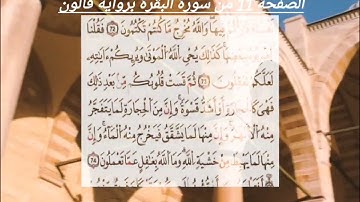 الصفحة 11 من سورة البقرة برواية قالون
فيها والله مخرج ما كنتم تكتمون (71) فقلنا
كذلك يحي الله الموتى ويريكم ءايته
لعلكم تعقلون (72) ثم قست قلوبكم من بعد ذلك
فهي كالحجارة أو أشد قسوة وإن من الحجارة لما يتفجر
منه الأنهر وإن منها لما يشقق فيخرج منه الماء وإن
منها لما يهبط من خشية الله وما الله بغفل عما تعملون (73)